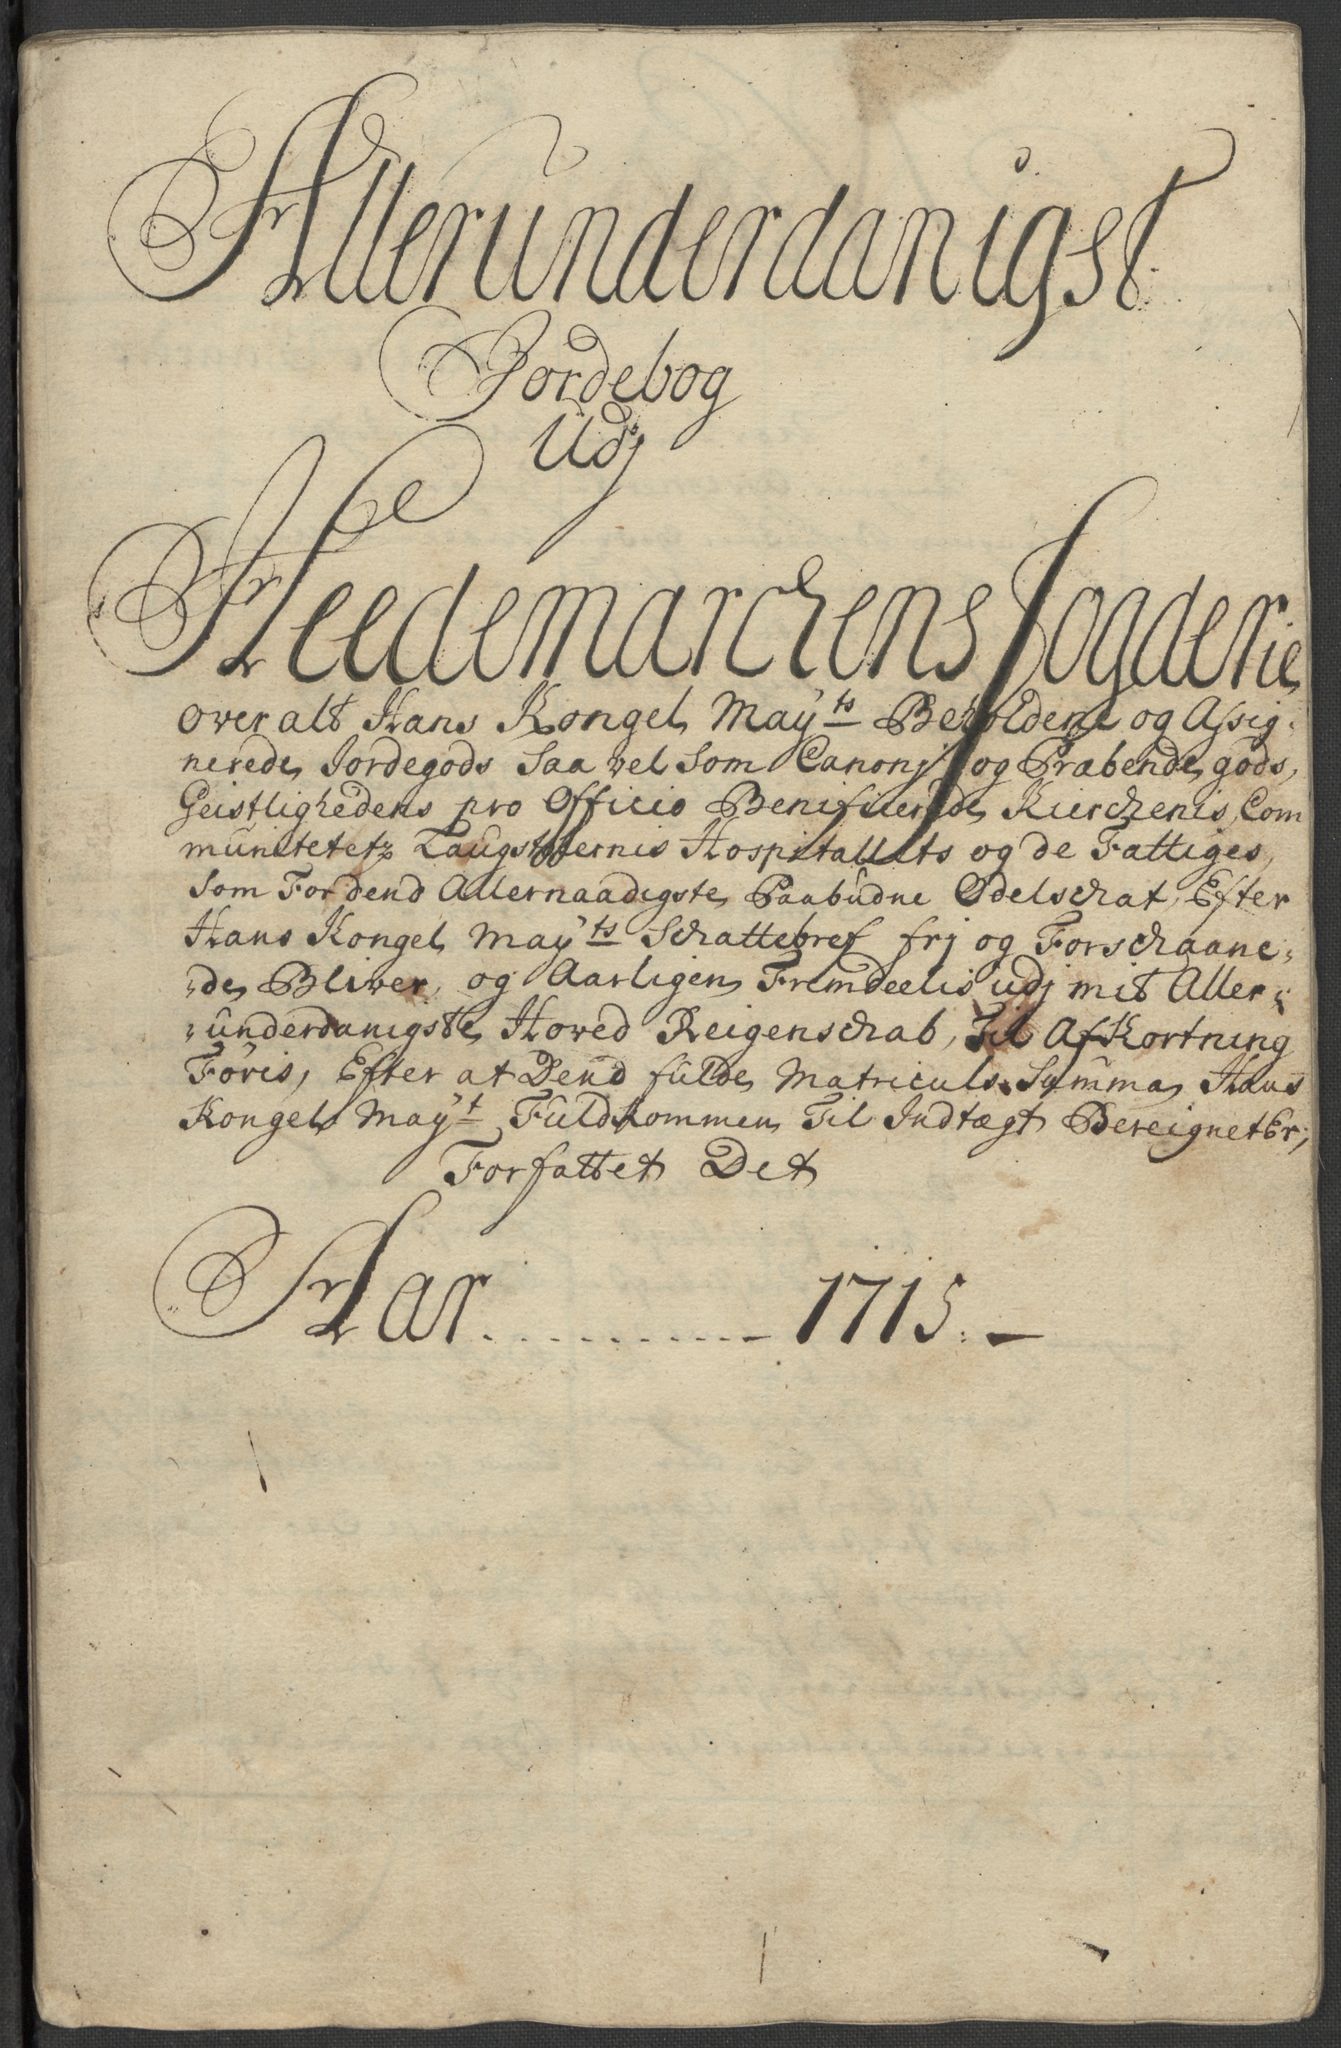 Allerunderdanigst
Jordebog
Udj
Heedemarchens Fogderie
over alt Hans Kongel May^ts Beholdene og Assig:
nerede Jordegods Saa vel Som Canonj og Præbende gods,
Geistlighedens pro Officio Benificerede Kierchenis, Com
munitetetz Laugstolernis Hospitallets og de Fattiges,
Som For dend Allernaadigste Paabudne Odelschat, Efter
Hans Kongel May^ts Schattebref frj og Forschaane:
:de Bliver, og Aarligen Fremdeelis udj mit Aller:
:underdanigste Hoved Reigenschab, Til Afkortning
Føris, Efter at Dend fulde Matriculs Summa Hans
Kongel May^t Fuldkommen Til Indtægt Bereignet Er;
Forfattet Det
Aar .......... 1715. -